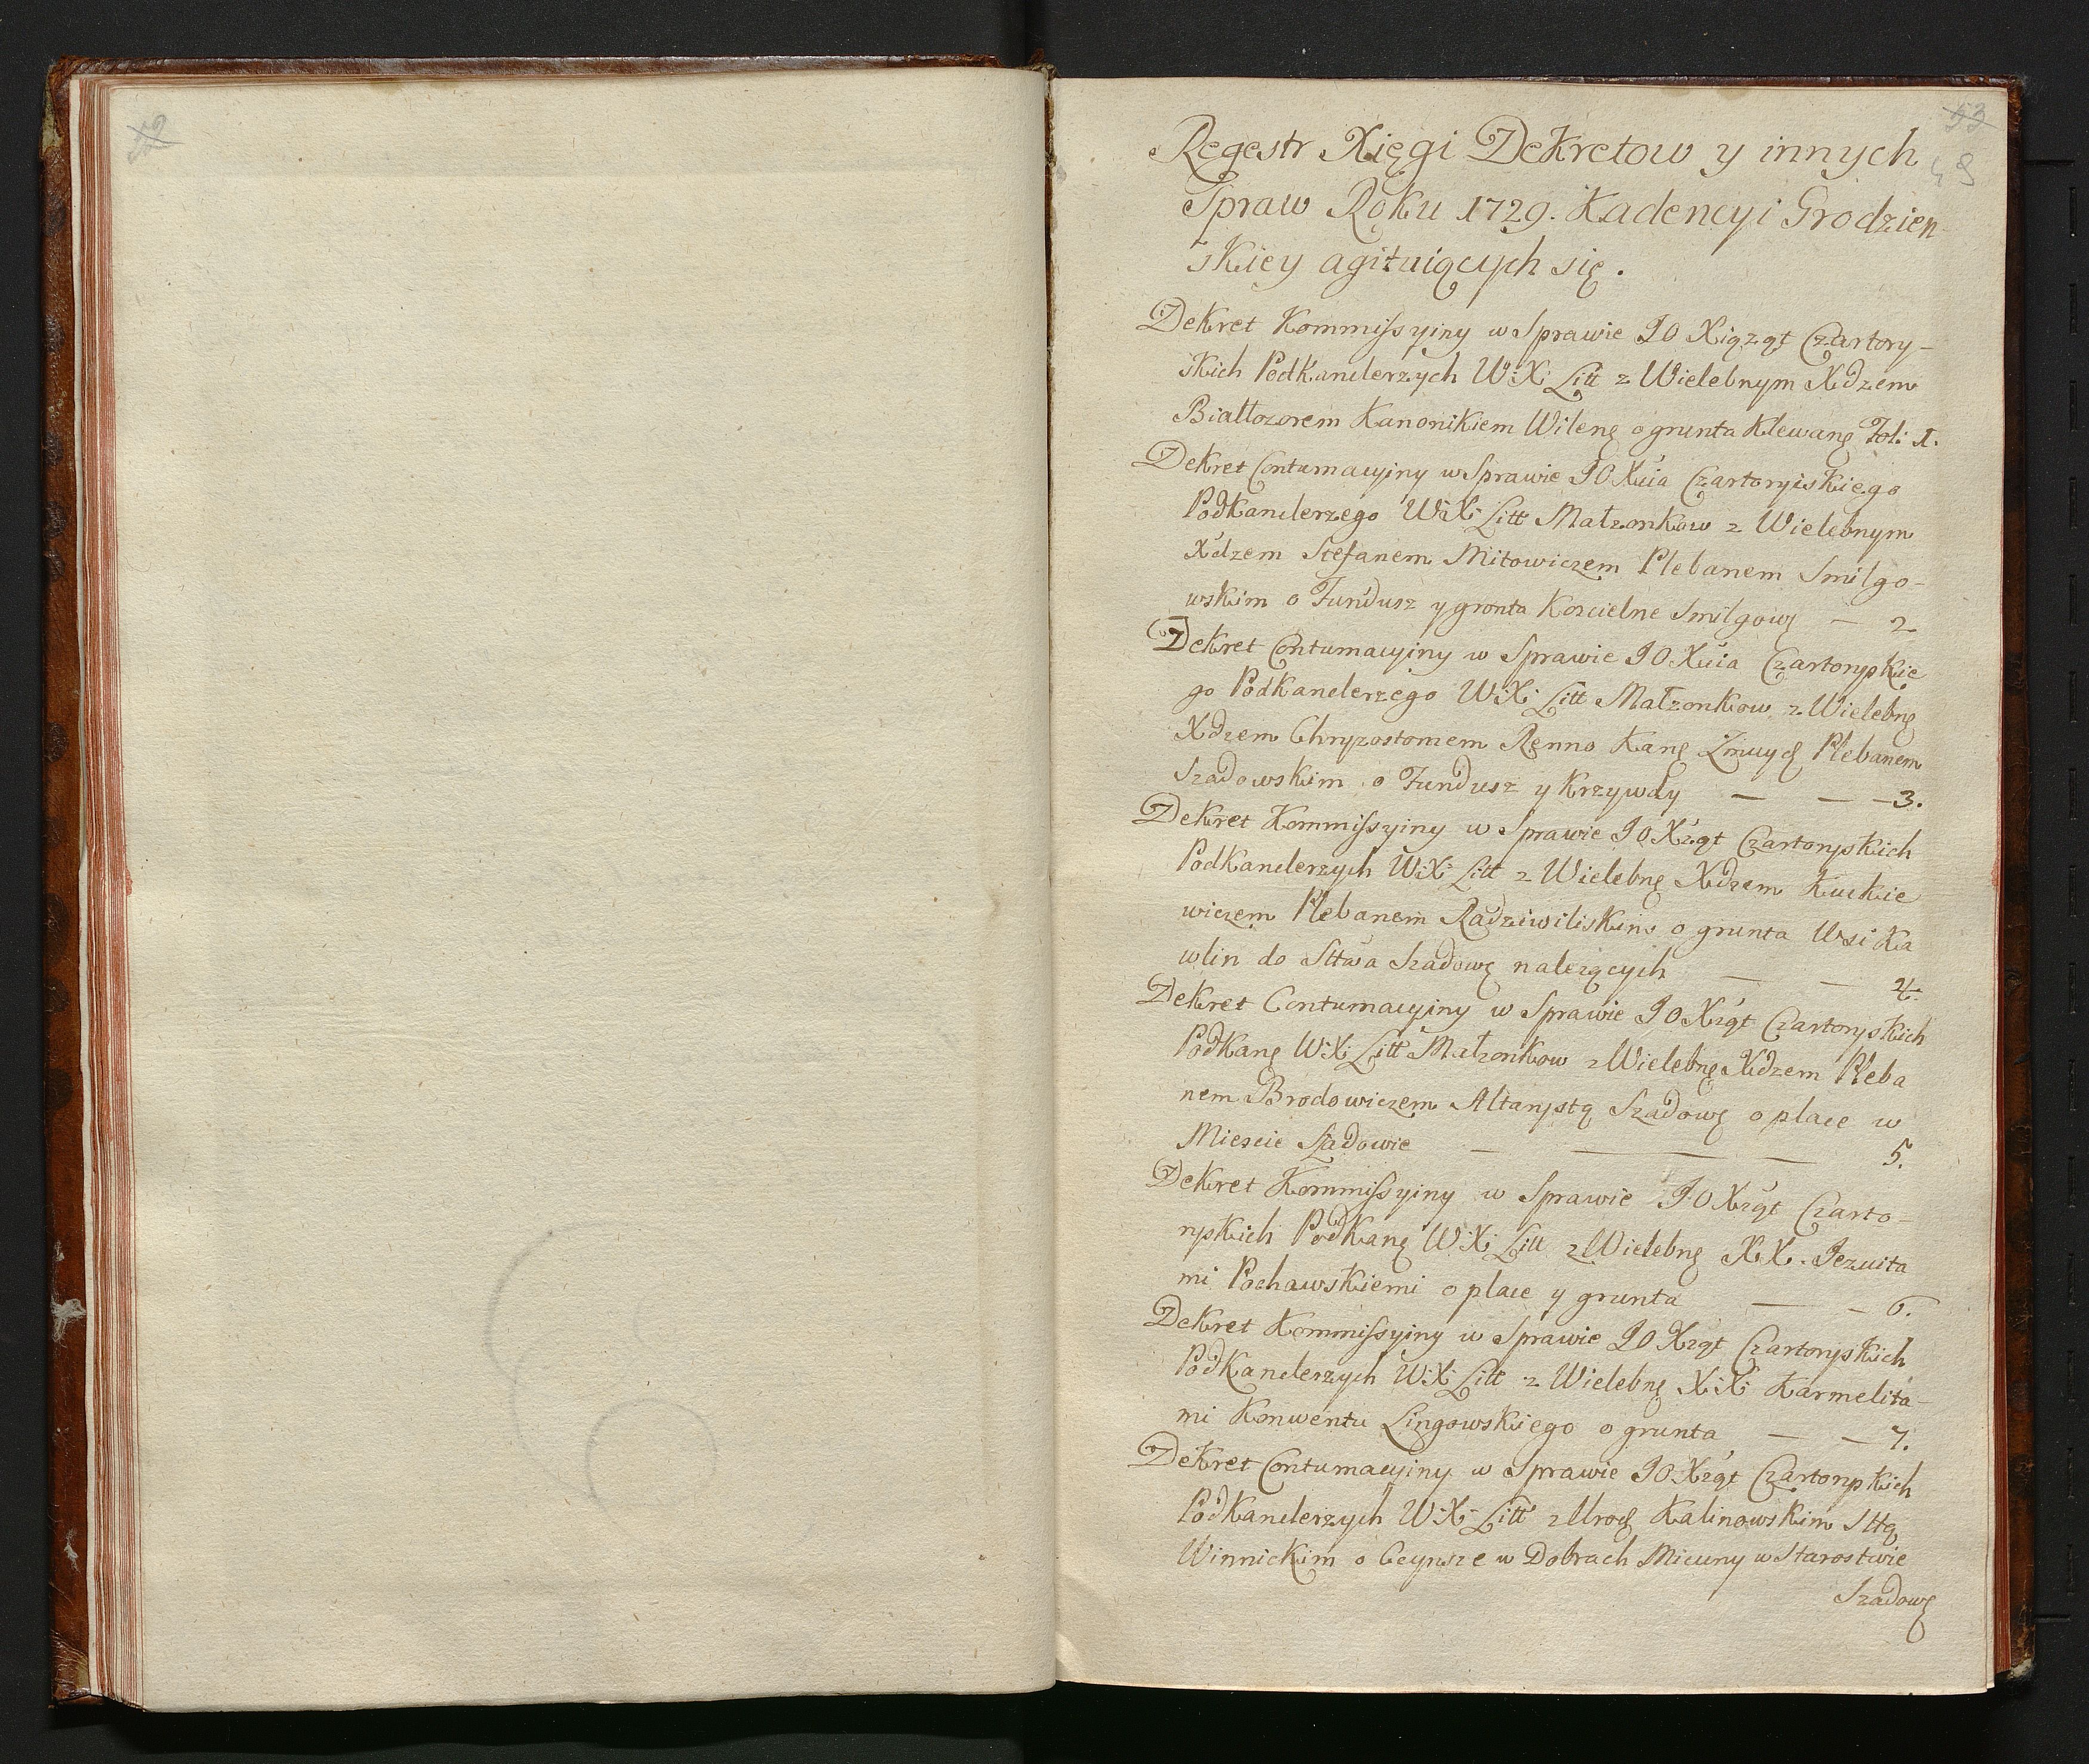 52
53
48
Regestr Xięgi Dekretow y innych
Spraw Roku 1729. Kadencyi Grodzien-
skiey agituiących się.
Dekret Kommissyiny w Sprawie JO Xiąząt Czartory-
skich Podkanclerzych W:X: Litt z Wielebnym Xdzem
Białłozorem Kanonikiem Wileng o grunta Klewang Fol: 1.
Dekret Contumacyiny w Sprawie JO Xcia Czartoryiskiego
Podkanclerzego W:X: Litt Małzonkow z Wielebnym
Xdzem Stefanem Mitowiczem Plebanem Smilgo-
wskim o Fundusz y gronta Koscielne Smilgowg — 2
Dekret Contumacyiny w Sprawie JO Xcia Czartoryskie
go Podkanclerzego W:X: Litt Małzonkow z Wielebng
Xdzem Chryzostomem Renno Kang Zmuyd Plebanem
Szadowskim o Fundusz y Krzywdy — — — 3.
Dekret Kommissyiny w Sprawie JO Xząt Czartoryskich
Podkanclerzych W:X: Litt z Wielebng Xdzem Kuckie
wiczem Plebanem Radziwiliskim o grunta Wsi Ka
wlin do Sttwa Szadowg nalezących — — 4.
Dekret Contumacyiny w Sprawie JO Xząt Czartoryskich
Podkang W:X: Litt Małzonkow z Wielebng Xdzem Pleba
nem Brodowiczem Altarystą Szadowg o place w
Miescie Szadowie — — — 5.
Dekret Kommissyiny w Sprawie JO Xząt Czarto-
ryskich Podkang W:X: Litt z Wielebng X.X. Jezuita
mi Pochawskiemi o place y grunta — — 6.
Dekret Kommissyiny w Sprawie JO Xząt Czartoryskich
Podkanclerzych W:X: Litt z Wielebng X:X: Karmelita-
mi Konwentu Lingowskiego o grunta — — 7.
Dekret Contumacyiny w Sprawie JO Xząt Czartoryskich
Podkanclerzych W:X: Litt z Urod Kalinowskim Sttą
Winnickim o Czynsze w Dobrach Micuny w Starostwie
Szadowg